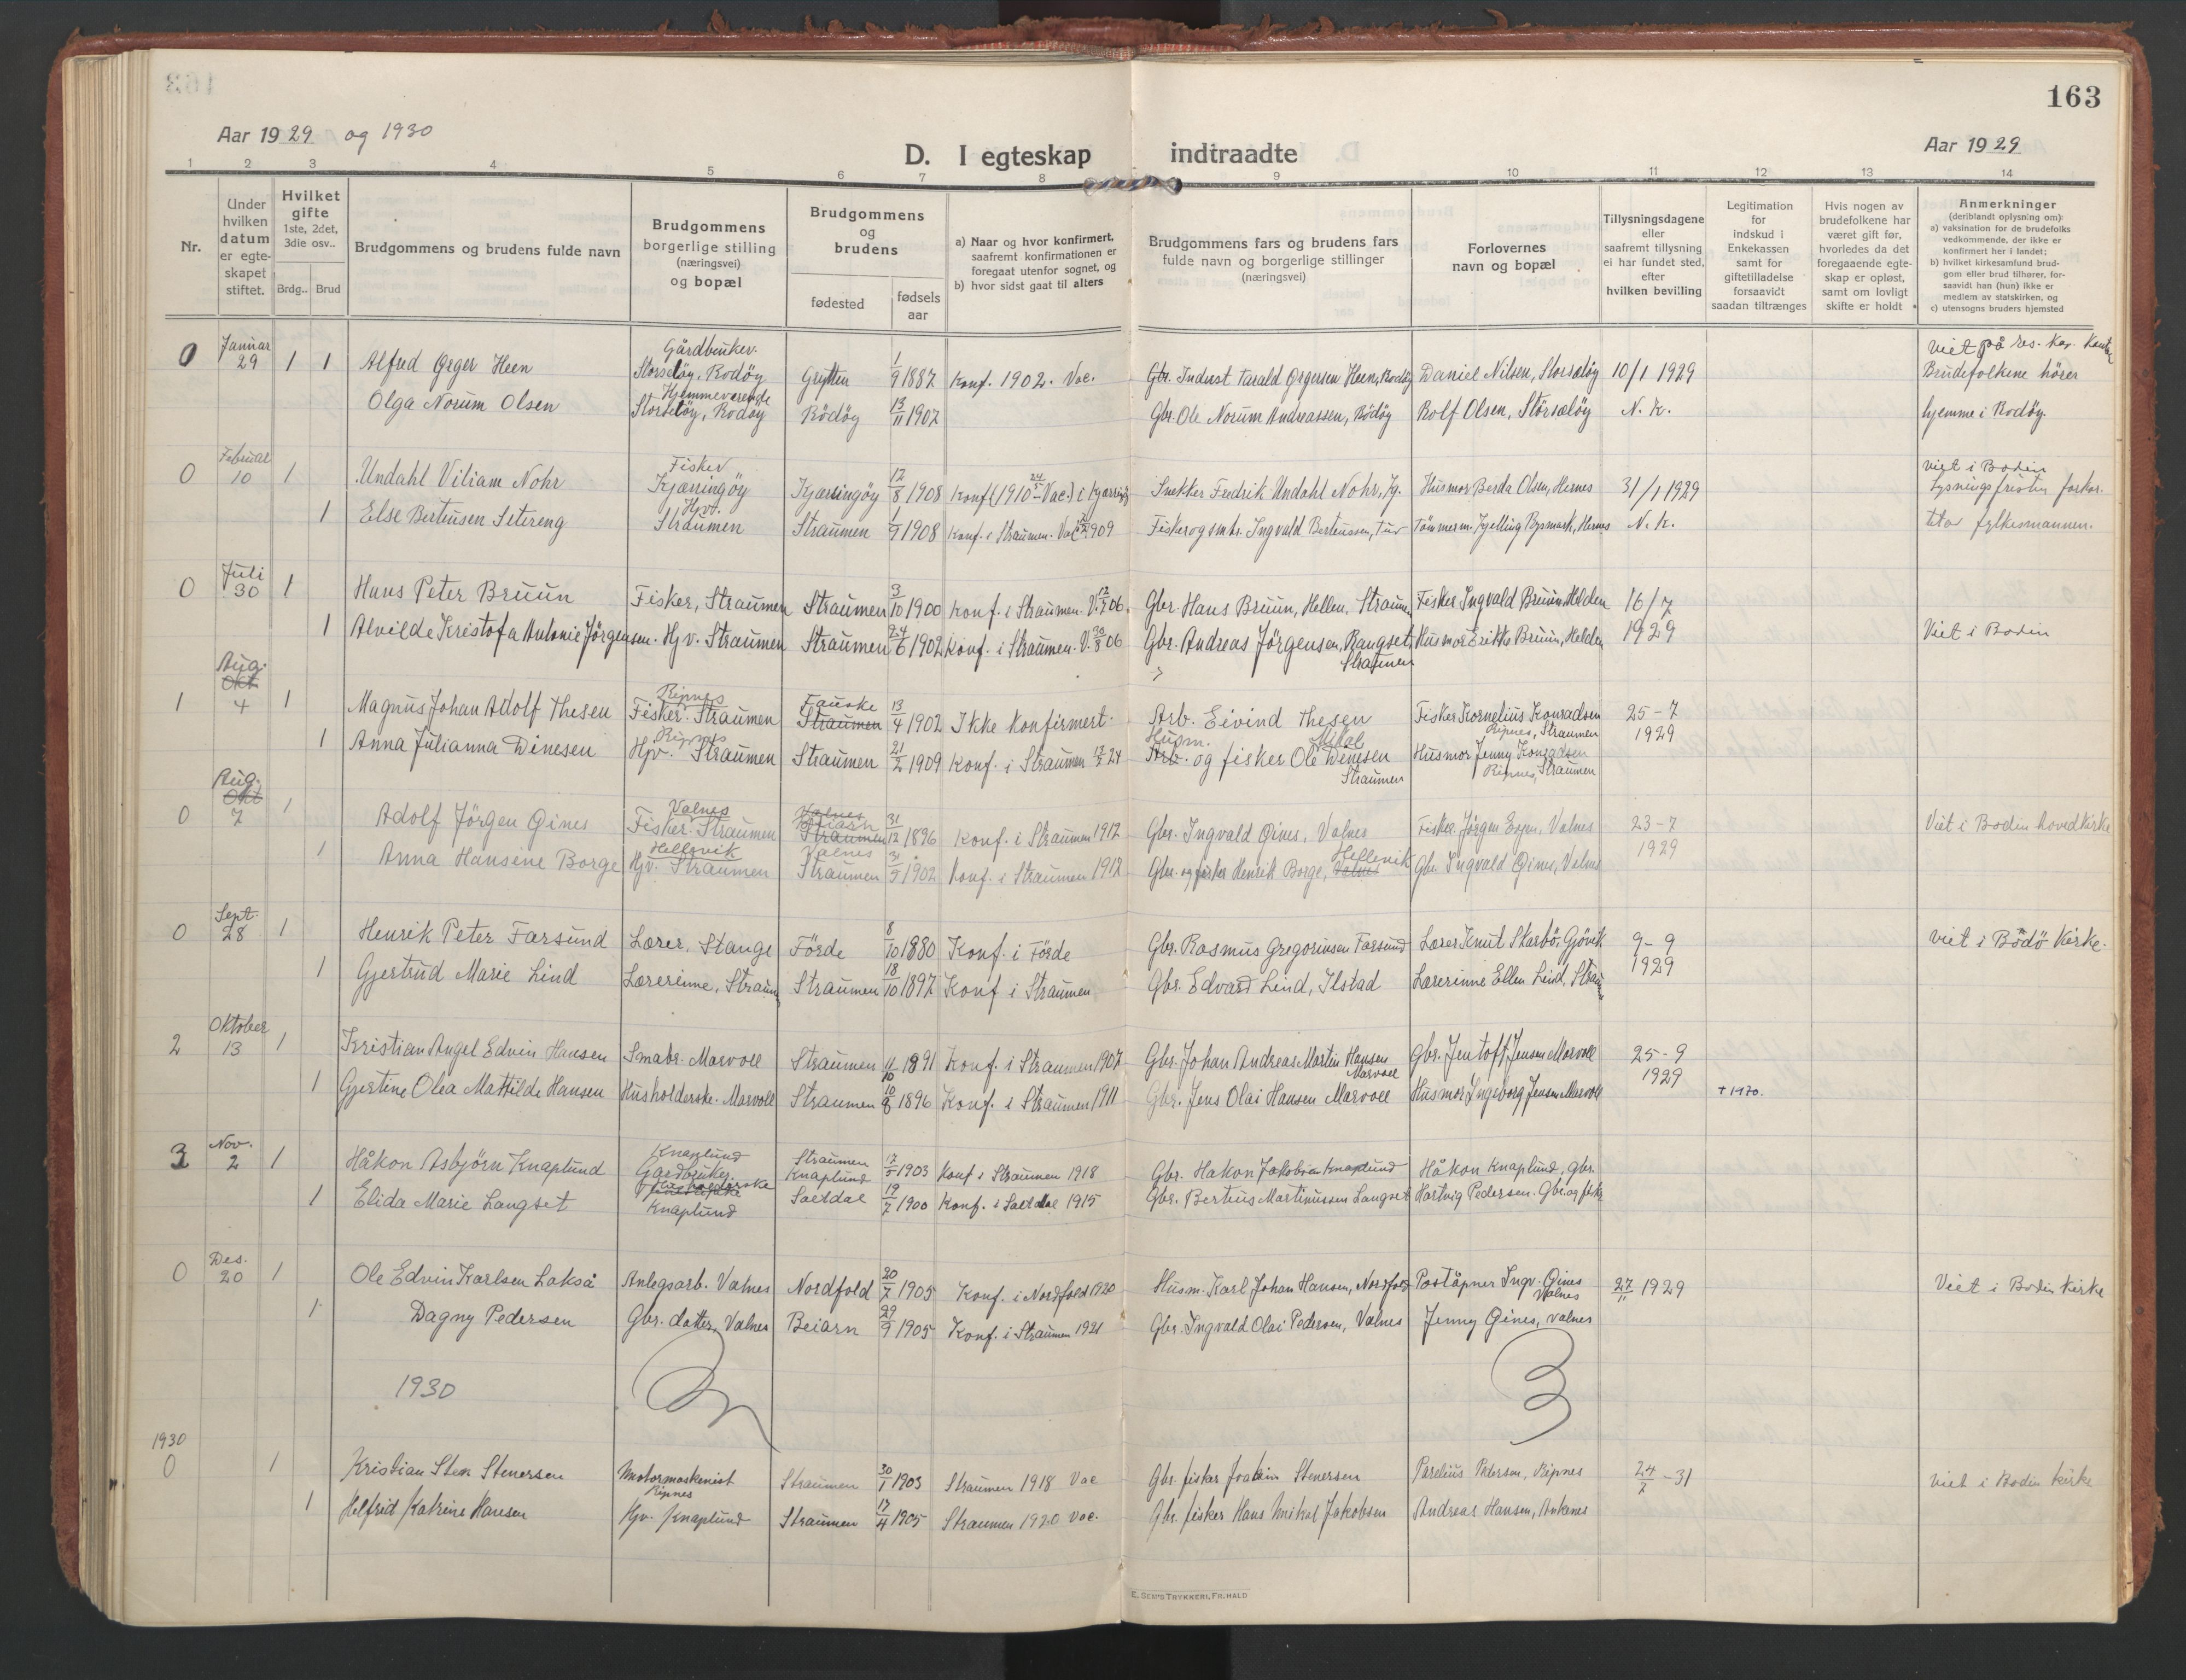 163
Aar 1929 og 1930
Aar 1929
D. I egteskap indtraadte
1 2 3 4 5 6 7 8 9 10 11 12 13 14
Nr.
Under hvilken datum er egte-skapet stiftet.
Hvilket gifte 1ste, 2det, 3die osv..
Brdg.. Brud
Brudgommens og brudens fulde navn
Brudgommens borgerlige stilling (næringsvei) og bopæl
Brudgommens og brudens
fødested
fødsels aar
a) Naar og hvor konfirmert, saafremt konfirmationen er foregaat utenfor sognet, og
b) hvor sidst gaat til alters
Brudgommens fars og brudens fars fulde navn og borgerlige stillinger (næringsvei)
Forlovernes navn og bopæl
Tillysningsdagene eller saafremt tillysning ei har fundet sted, efter hvilken bevilling
Legitimation for indskud i Enkekassen samt for giftetilladelse forsaavidt saadan tiltrænges
Hvis nogen av brudefolkene har været gift før, hvorledes da det foregaaende egte-skap er opløst, samt om lovligt skifte er holdt
Anmerkninger (deriblandt oplysning om):
a) vaksination for de brudefolks vedkommende, der ikke er konfirmert her i landet;
b) hvilket kirkesamfund brud-gom eller brud tilhører, for-saavidt han (hun) ikke er medlem av statskirken, og
c) utensogns bruders hjemsted
0 Januar 29 1 1 Alfred Ørger Heen Gårdbruker. Storseløy, Rodøy Grytten 1/9 1887 Konf. 1902. Vac. Gbr. Indust Tarald Ørgersen Heen, Rodøy Daniel Nilsen, Storseløy 10/1 1929 viet på res. kap. Brudefolkene hører
Olga Norum Olsen Hjemmeverende Storseløy, Rodøy Rödöy 13/11 1907 Gbr. Ole Norum Andreassen, Rödöy Rolf Olsen, Störseløy N. K. hjemme i Rodøy.
0 Februar 10 1 Undahl Viliam Nohr Fisker Kjærringöy Kjærringöy 12/8 1908 Konf (1910 24/5 Vac.) i Kjærringö Snekker Fredrik Undahl Nohr, Kj. Husmor Berda Olsen, Hernes 31/1 1929 viet i Bodin Lysningsfristen forkor.
1 Else Berteusen Setereng Hjv. Straumen Straumen 1/9 1908 Konf. i Straumen. Vac 1909 Fisker og smbr. Ingvald Berteussen, Tuv Tömmerm. Kjelling Rysmark, Hernes N. K. tet av fylkesmannen.
0 Juli 30 1 Hans Peter Bruun Fisker, Straumen Straumen 3/10 1900 Konf. i Straumen. V. 12/7 06. Gbr. Hans Bruun, Hellen, Straum. Fisker Ingvald Bruun, Helden 16/7
1 Alvilde Kristofa Antonie Jörgensen. Hjv. Straumen Straumen 24/6 1902 Konf. i Straumen. V. 30/8 06 Gbr. Andreas Jörgensen, Rangset, Straumen Husmor Erikke Bruun, Helden 1929 Viet i Bodin
1 Aug. Okt. 4 1 Magnus Johan Adolf Thesen Ripnes Fisker. Straumen Fauske Straumen 13/4 1902 Ikke konfirmert. Arb. Eivind Thesen Fisker Kornelius Konradsen Ripnes, Straumen 25-7 1929
1 Anna Julianna Dinesen Ripnes Hjv. Straumen Straumen 21/2 1909 Konf. i Straumen 17/7 24 Husm. Arb. og fisker Ole Mikal Dinesen Straumen Husmor Jenny Konradsen Ripnes, Straumen
0 Aug. Okt 7 1 Adolf Jörgen Gines Valnes Fisker. Straumen Valnes Beiarn Straumen 31/12 1896 Konf. i Straumen 1912 Gbr. Ingvald Gines, Valnes Fisker Jörgen Espen, Valnes 23-7 1929 Viet i Bodin hovedkirke
1 Anna Hansine Borge Hellevik Hjv. Straumen Valnes Straumen 3/5 1902 Konf. i Straumen 1912 Gbr. og fisker Henrik Borge, Hellevik Valnes Gbr. Ingvald Gines, Valnes
0 Sept. 28 1 Henrik Peter Farsund Lærer. Stange Förde 8/10 1880 Konf. i Förde Gbr. Rasmus Gregoriusen Farsund Lærer Knut Skarbö, Gjövik 9-9 1929 viet i Bödö Kirke.
1 Gjertrud Marie Lind Lærerinne, Straum Straumen 18/10 1897 Konf i Straumen Gbr. Edvard Lind, Ilstad Lærerinne Ellen Lind, Straum
2 Oktober 13 1 Kristian Angel Edvin Hansen Smabr. Marvoll Straumen 11/10 1891 Konf. i Straumen 1907 Gbr. Johan Andreas Martin Hansen Marvoll Gbr. Jentoft Jensen Marvoll 25-9 1929
1 Gjertine Olea Mattilde Hansen Husholderske. Marvoll Straumen 10/8 1896 Konf. i Straumen 1911 Gbr. Jens Olai Hansen Marvoll Husmor Ingeborg Jensen Marvoll + 1970.
3 Nov. 2 1 Håkon Asbjörn Knaplund Knaplund Gardbruker. Straumen Knaplund 17/5 1903 Konf i Straumen 1918 Gbr. Hakon Jakobsen Knaplund Håkon Knaplund, gbr.
1 Elida Marie Langset Husholderske Knaplund Saltdal 19/7 1900 Konf. i Saltdal 1915 Gbr. Berteus Martinussen Langset Hartvig Pedersen. Gbr. og fisker
0 Des. 20 1 Ole Edvin Karlsen Lakså Anlegsarb. Valnes Nordfold 20/7 1905 Konf. i Nordfold 1920 Husm. Karl Johan Hansen, Nordfold Poståpner Ingv. Gines Valnes 27/11 1929 Viet i Bodin Kirke
1 Dagny Pedersen Gbr. datter, Valnes Beiarn 29/9 1905 Konf. i Straumen 1921 Gbr. Ingvald Olai Pedersen, Valnes Jenny Gines, Valnes
1930
1930
0 1 Kristian Sten Stenersen Motormaskenist Ripnes Straumen 30/1 1903 Straumen 1918 Vac Gbr. fisker Joakim Stenersen Parelius Pedersen, Ripnes 24/7-31 viet i Bodin kirke
1 Helfrid Katrine Hansen Hjv. Knaplund Straumen 17/4 1905 Straumen 1920 Vac. Gbr. fisker Hans Mikal Jakobsen Andreas Hansen, Ankenes
E. SEM'S TRYKKERI, FR.HALD